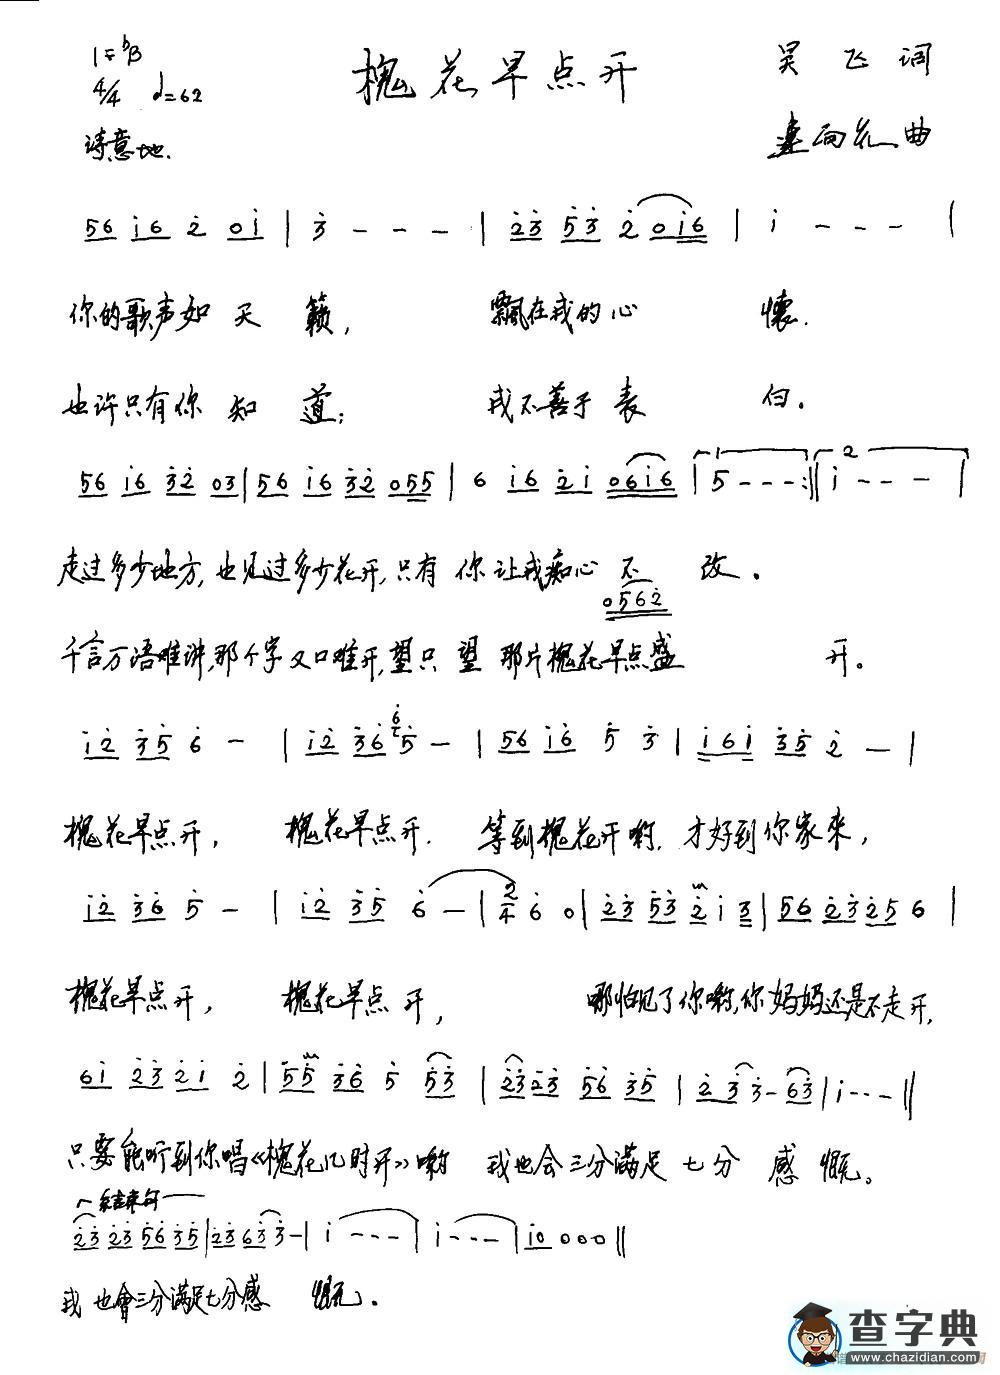 1=ᵇB
槐花早点开
吴飞词
4/4 ♩=62
诗意地.
曲
56 i6 2 0i | 3 - - - | 23 53 2 0i6 | i - - - |
你的歌声如天籁, 飘在我的心怀.
也许只有你知道; 我不善于表白。
56 i6 32 03 | 56 i6 32 055 | 6 i6 2i 06i6 | 1 5 - - - :|| 2 i - - - |
走过多少地方,也见过多少花开,只有你让我痴心不改。
0562
千言万语难讲,那个字又口难开,望只望那片槐花早点盛开。
i2 35 6 - | i2 36 6 5 - | 56 i6 5 3 | i6i 35 2 - |
槐花早点开, 槐花早点开. 等到槐花开哟.才好到你家来,
i2 36 5 - | i2 35 6 - | 2/4 6 0 | 23 53 2 i 3 | 56 23 25 6 |
槐花早点开, 槐花早点开, 哪怕见了你哟,你妈妈还是不走开,
6i 23 2i 2 | 55 36 5 53 | 23 23 56 35 | 2 3 3 - 63 | i - - - ||
只要能听到你唱《槐花几时开》哟 我也会三分满足七分感慨。
结束句
23 23 56 35 | 23 63 3 - | i - - - | i - - - | i0 0 0 0 ||
我也會三分满足七分感慨。
查字典
www.chazidian.com